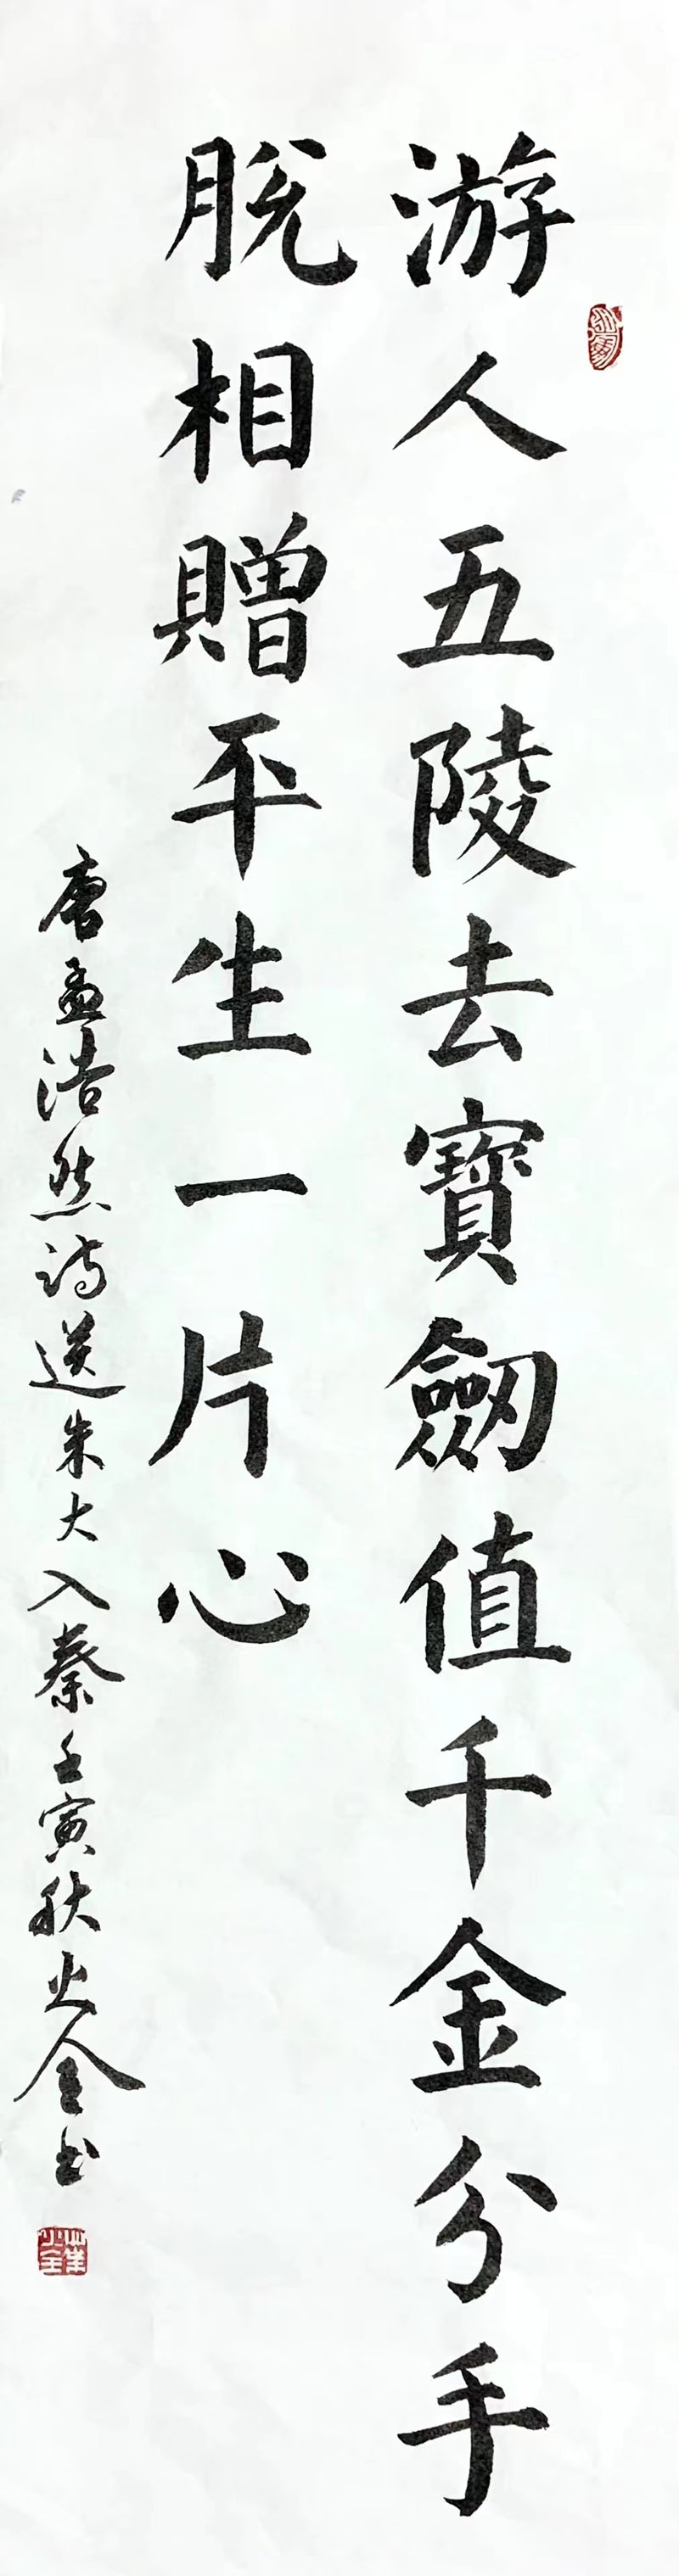 游人五陵去寶劒值千金分手
脱相贈平生一片心
唐孟浩然诗送朱大入秦壬寅秋火金书